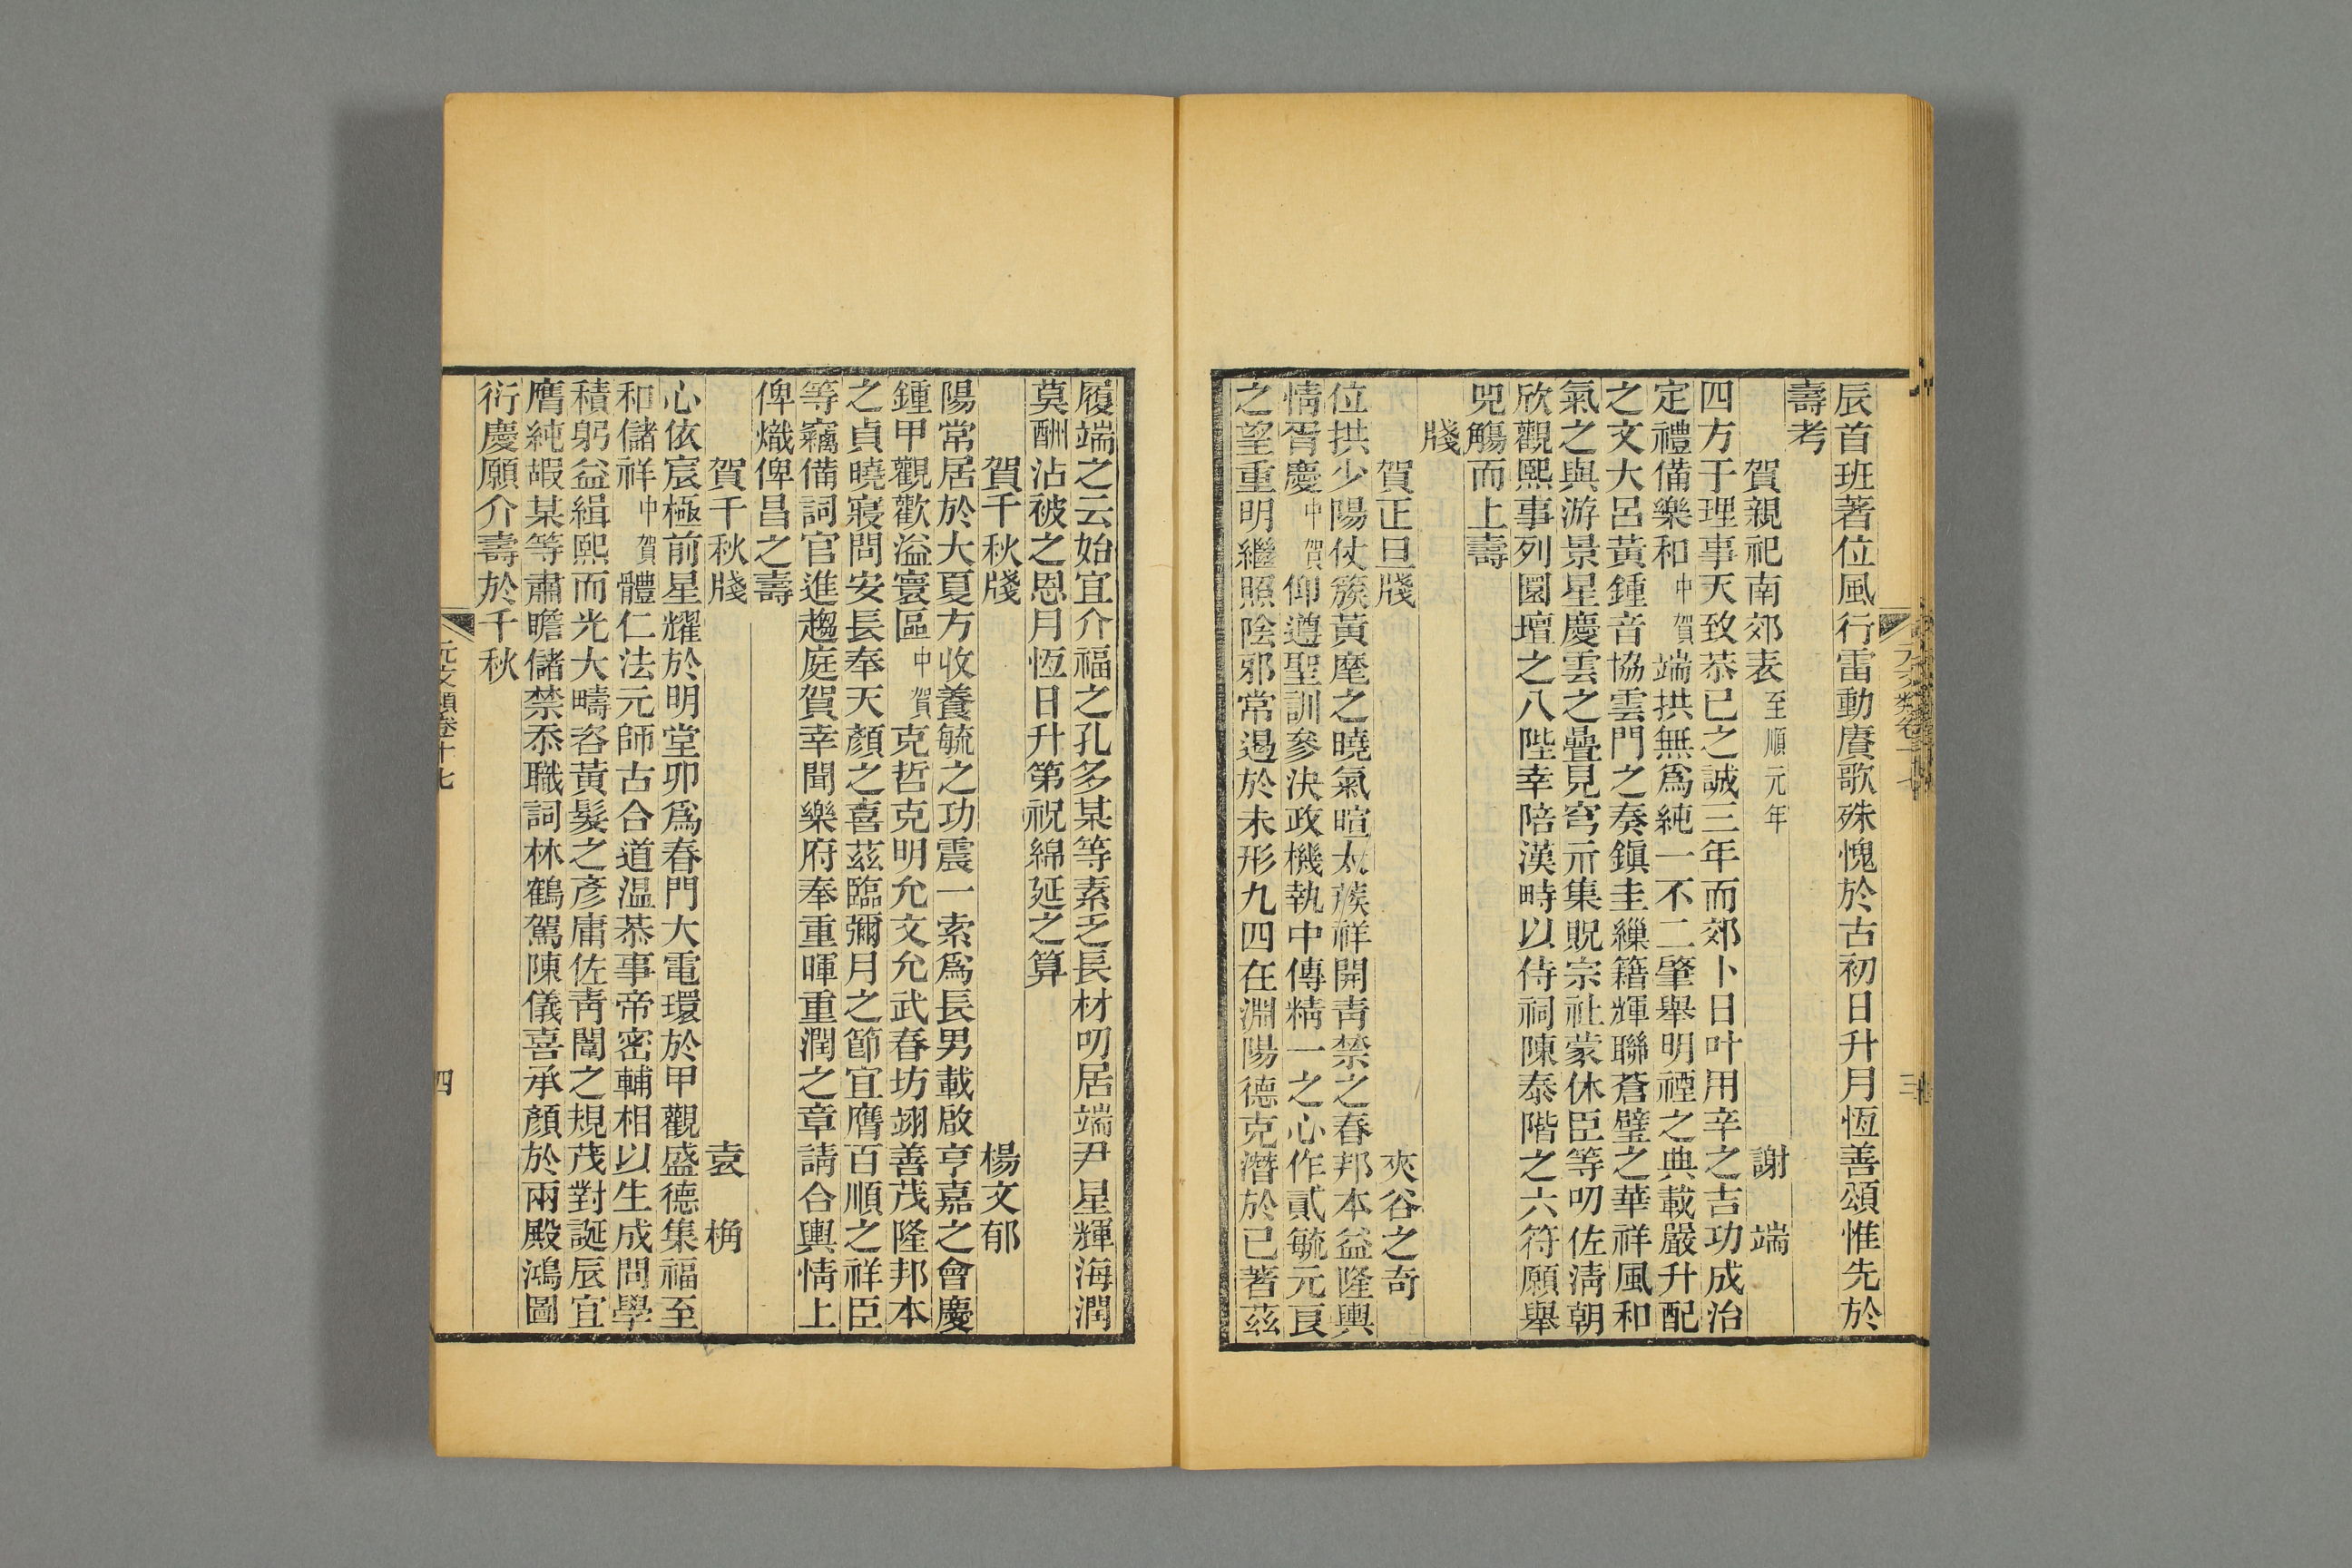 辰首班著位風行雷動賡歌殊愧於古初日升月恆善頌惟先於
壽考
賀親祀南郊表至順元年 謝端
四方于理事天致恭已之誠三年而郊卜日叶用辛之吉功成治
定禮備樂和中賀端拱無爲純一不二肇舉明禋之典載嚴升配
之文大呂黃鍾音協雲門之奏鎭圭繅籍輝聯蒼璧之華祥風和
氣之與游景星慶雲之疊見穹示集貺宗社蒙休臣等叨佐淸朝
欣觀熙事列圜壇之八陛幸陪漢畤以侍祠陳泰階之六符願舉
兕觴而上壽
牋
賀正旦牋 夾谷之奇
位拱少陽仗簇黃麾之曉氣暄太蔟祥開靑禁之春邦本益隆輿
情胥慶中賀仰遵聖訓參決政機執中傳精一之心作貳毓元良
之望重明繼照陰邪常遏於未形九四在淵陽德克潛於已著茲
元文類卷十七
三
履端之云始宜介福之孔多某等素乏長材叨居端尹星輝海潤
莫酬沾被之恩月恆日升第祝綿延之算
賀千秋牋 楊文郁
陽常居於大夏方收養毓之功震一索爲長男載啟亨嘉之會慶
鍾甲觀歡溢寰區中賀克哲克明允文允武春坊翊善茂隆邦本
之貞曉寢問安長奉天顏之喜茲臨彌月之節宜膺百順之祥臣
等竊備詞官進趨庭賀幸聞樂府奉重暉重潤之章請合輿情上
俾熾俾昌之壽
賀千秋牋 袁桷
心依宸極前星耀於明堂卯爲春門大電環於甲觀盛德集福至
和儲祥中賀體仁法元師古合道温恭事帝密輔相以生成問學
積躬益緝熙而光大疇咨黃髮之彥庸佐靑闈之規茂對誕辰宜
膺純嘏某等肅瞻儲禁忝職詞林鶴駕陳儀喜承顏於兩殿鴻圖
衍慶願介壽於千秋
元文類卷十七
四